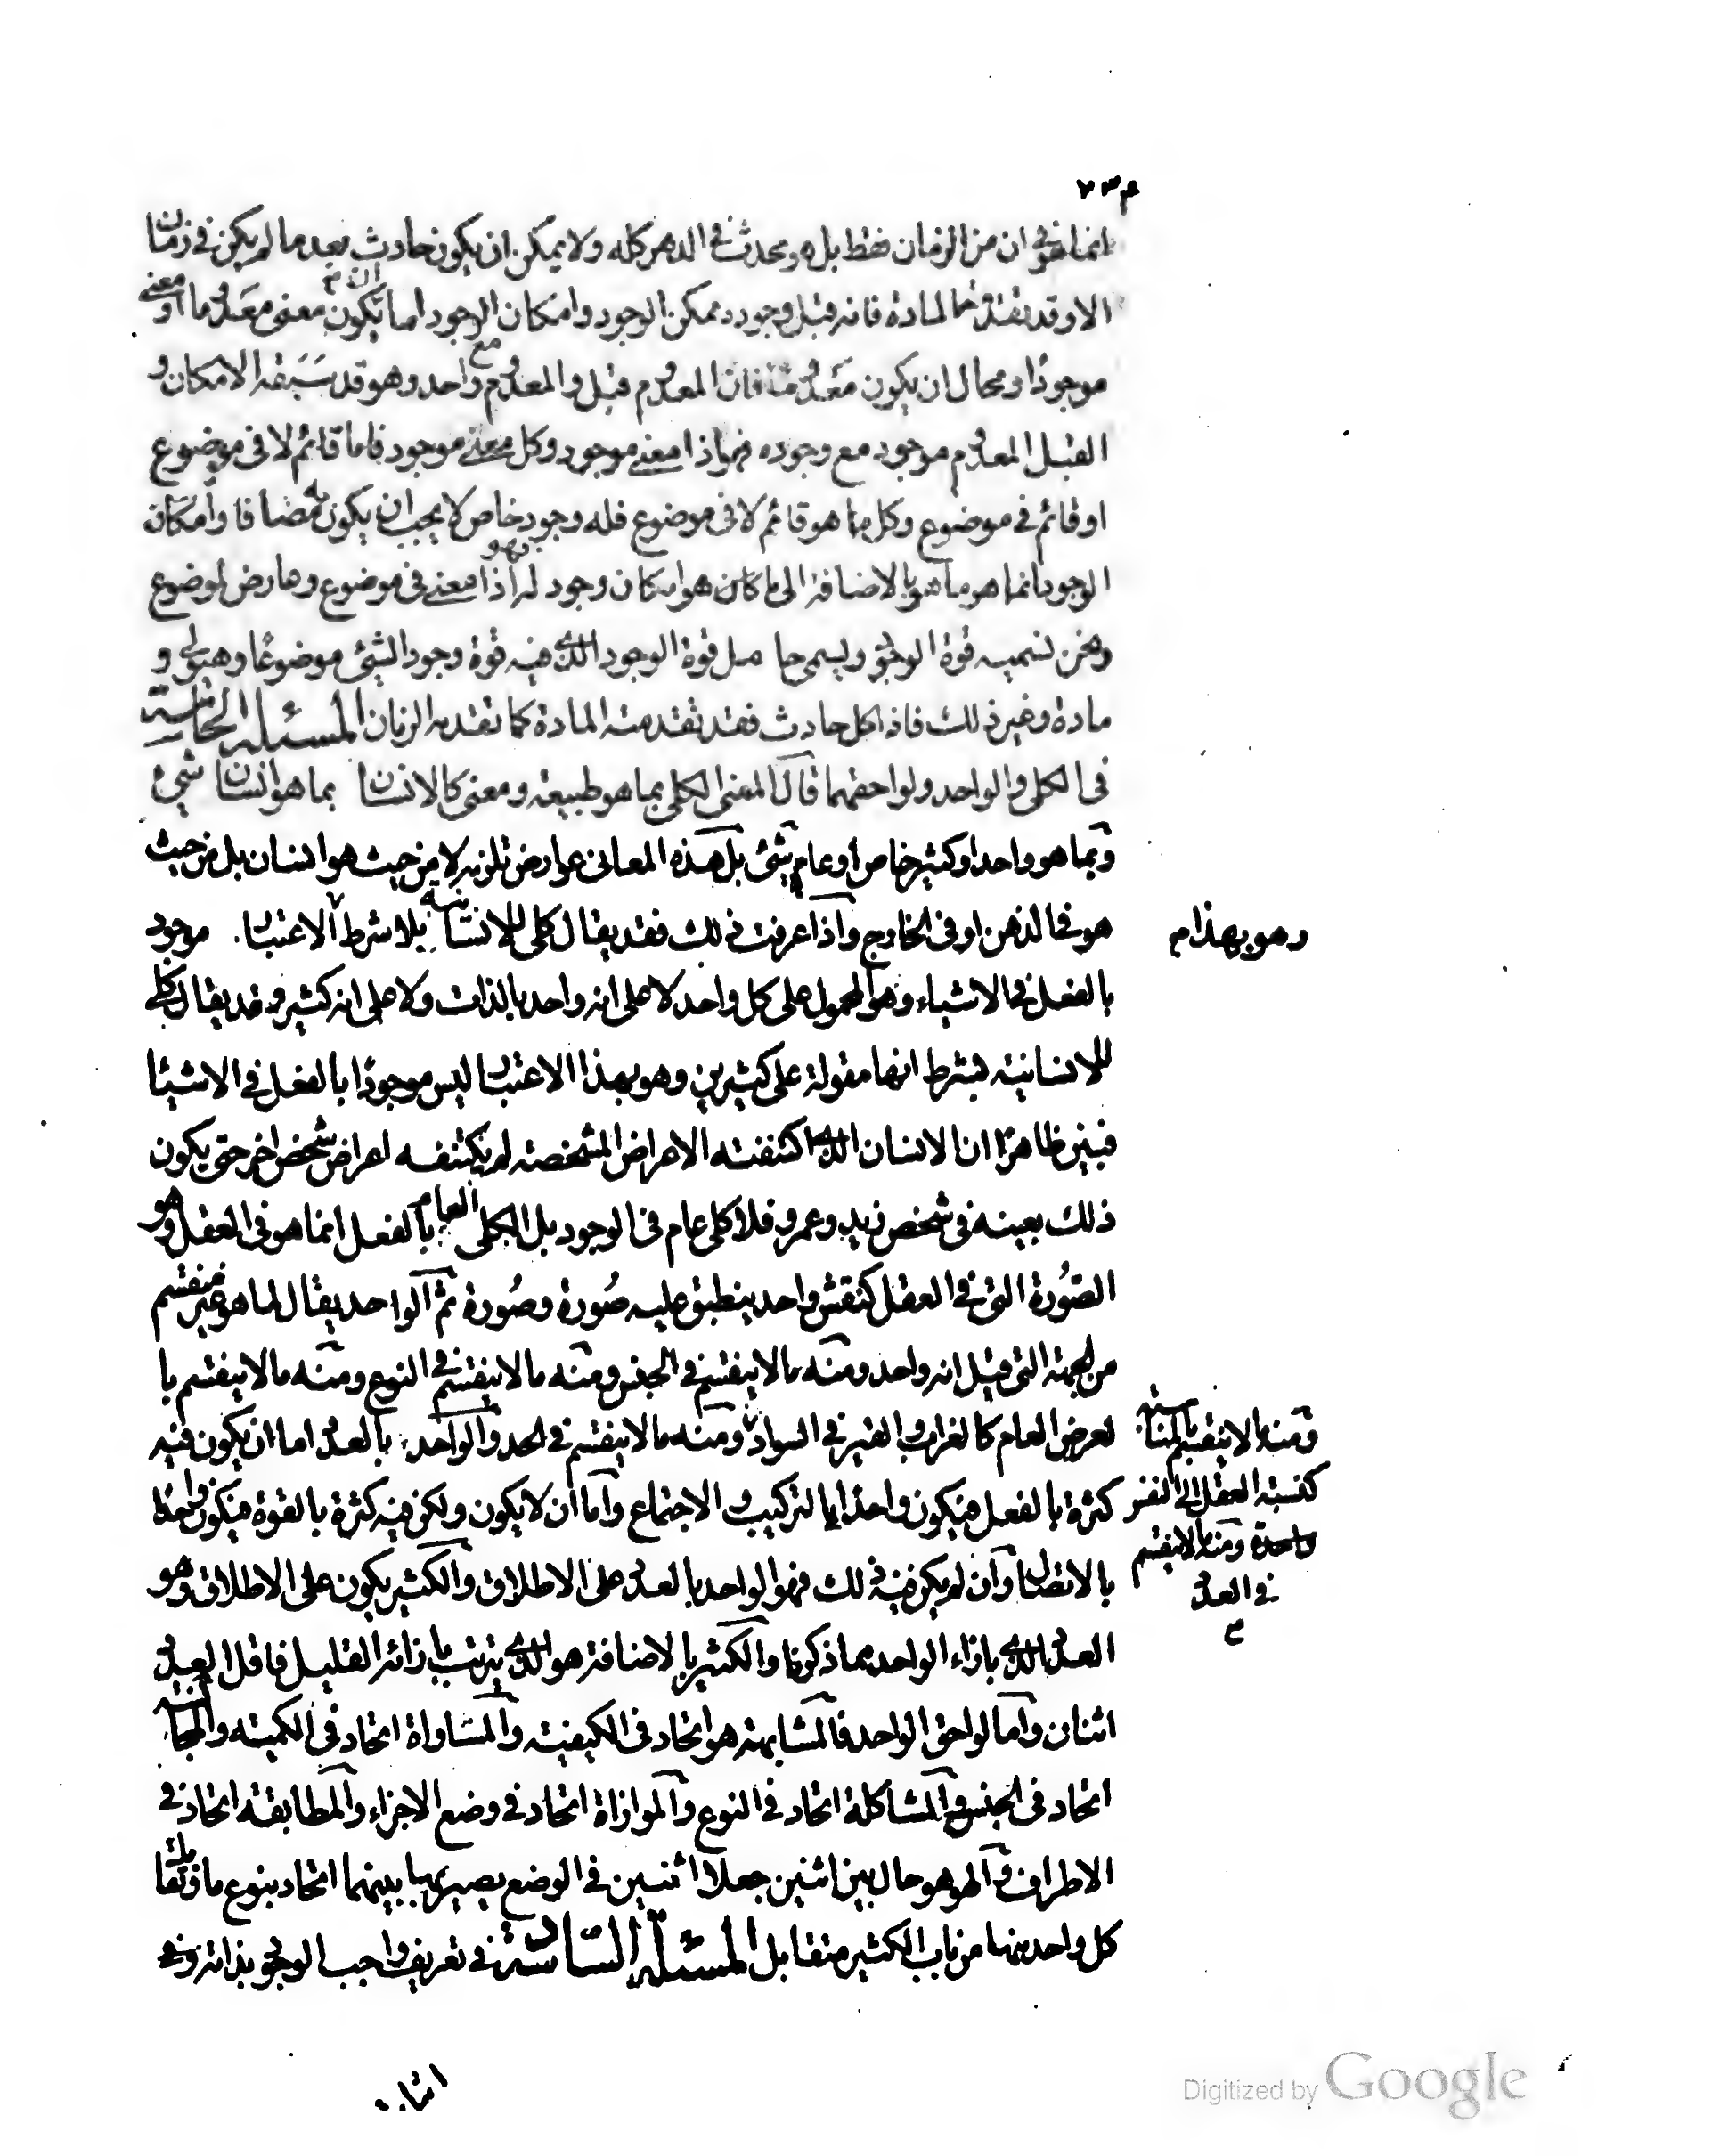 انما هو في ان من الزمان فقط بل هو محدث في الدهر كله ولا يمكن ان يكون حادث بعد ما لم يكن في زمان
الا وقد تقدمه المادة فانه قبل وجوده ممكن الوجود وامكان الوجود اما ان يكون معنى معدوما او معنى
موجودا ومحال ان يكون معدوما فان المعدوم قبل والمعدوم مع واحد وهو قد سبقه الامكان و
القبل المعدوم موجود مع وجوده فهو اذا معنى موجود وكل معنى موجود فاما قائم لا في موضوع
او قائم في موضوع وكل ما هو قائم لا في موضوع فله وجود خاص لا يجب ان يكون به مضافا وامكان
الوجود انما هو ما هو بالاضافة الى ما كان هو امكان وجود له فهو اذا معنى في موضوع وعارض لموضوع
ونحن نسميه قوة الوجود ويسمى حامل قوة الوجود الذي فيه قوة وجود الشئ موضوعا وهيولى و
مادة وغير ذلك فاذا كل حادث فقد تقدمته المادة كما تقدمه الزمان المسئلة الخامسة
في الكلي والواحد ولواحقهما قال المعنى الكلي بما هو طبيعة ومعنى كالانسان بما هو انسان شئ
وبما هو واحد او كثير خاص او عام شئ بل هذه المعاني عوارض تلزمه لا من حيث هو انسان بل من حيث
هو في الذهن او في الخارج واذا عرفت ذلك فقد يقال كلي للانسانية بلا شرط الاعتبار موجود
وهو بهذا م
بالفعل في الاشياء وهو المحمول على كل واحد لا على انه واحد بالذات ولا على انه كثير وقد يقال كلي
للانسانية بشرط انها مقولة على كثيرين وهو بهذا الاعتبار ليس موجودا بالفعل في الاشيئا
فبين ظاهرا ان الانسان الذي اكتنفته الاعراض المشخصة لم يكتنفه اعراض شخص اخر حتى يكون
ذلك بعينه في شخص زيد وعمرو فلا كلي عام في الوجود بل الكلي العام بالفعل انما هو في العقل وهو
الصورة التي في العقل كنقش واحد ينطبق عليه صورة وصورة ثم الواحد يقال لما هو غير منقسم
من الجهة التي قيل انه واحد ومنه ما لا ينقسم في الجنس ومنه ما لا ينقسم في النوع ومنه ما لا ينقسم با
لعرض العام كالغراب والقير في السواد ومنه ما لا ينقسم في الحد والواحد بالعدد اما ان يكون فيه
ومنه ما لا ينقسم بالمناسبة
كنسبة العقل الى النفس
واحدة ومنه ما لا ينقسم
في العدد
كثرة بالفعل فيكون واحدا بالتركيب والاجتماع واما ان لا يكون ولكن فيه كثرة بالقوة فيكون واحدا
بالاتصال وان لم يكن فيه ذلك فهو الواحد بالعدد على الاطلاق والكثير يكون على الاطلاق وهو
العدد الذي بازاء الواحد مما ذكرنا والكثير بالاضافة هو الذي يترتب بازائه القليل فاقل العدد
اثنان واما لواحق الواحد فالمشابهة هو اتحاد في الكيفية والمساواة اتحاد في الكمية والمجانسة
اتحاد في الجنس والمشاكلة اتحاد في النوع والموازاة اتحاد في وضع الاجزاء والمطابقة اتحاد في
الاطراف والهوهو حال بين اثنين جعلا اثنين في الوضع يصير بها بينهما اتحاد بنوع ما ويقابل
كل واحد منها من باب الكثير متقابل المسئلة السادسة في تعريف واجب الوجود بذاته وفي